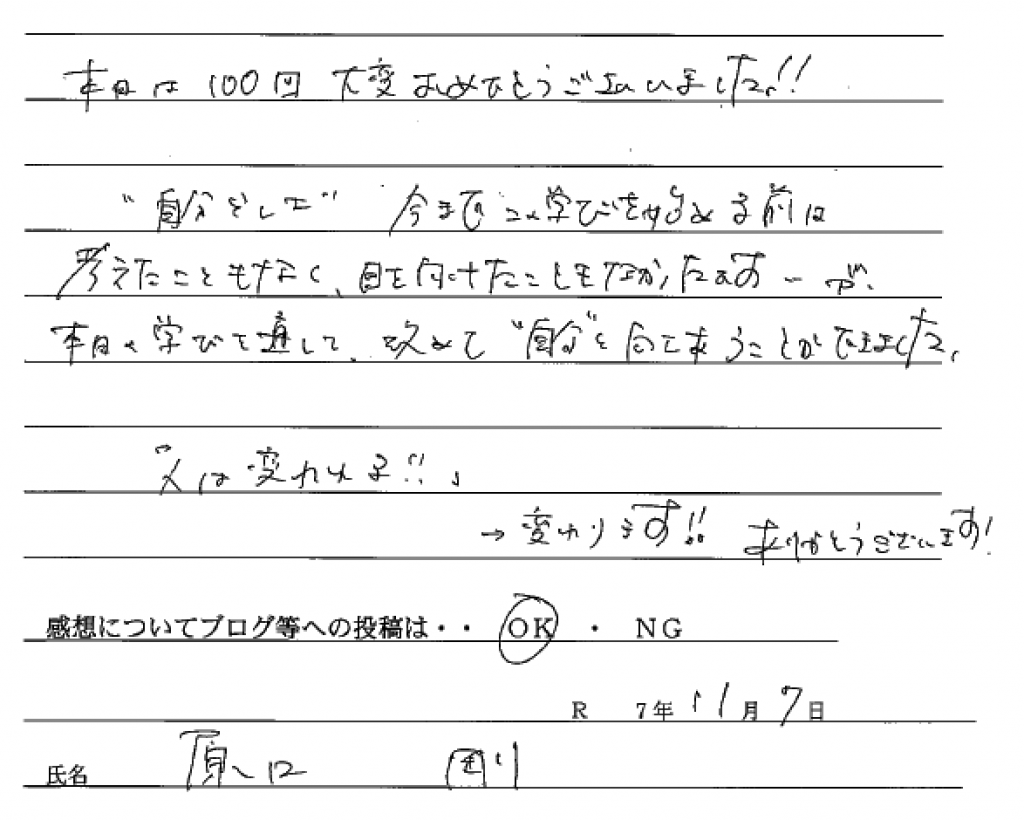 本日は100回 大変おめでとうございました!!
"自分をして" 今までの学びを始める前は
考えたこともなく、目を向けたこともなかったのですーが、
本日の学びを通して、改めて"自分"と向き合うことができました。
「人は変われる!!」
→変わります!! ありがとうございます!
感想についてブログ等への投稿は・・ OK ・ NG
R 7年11月7日
氏名 原口 剛